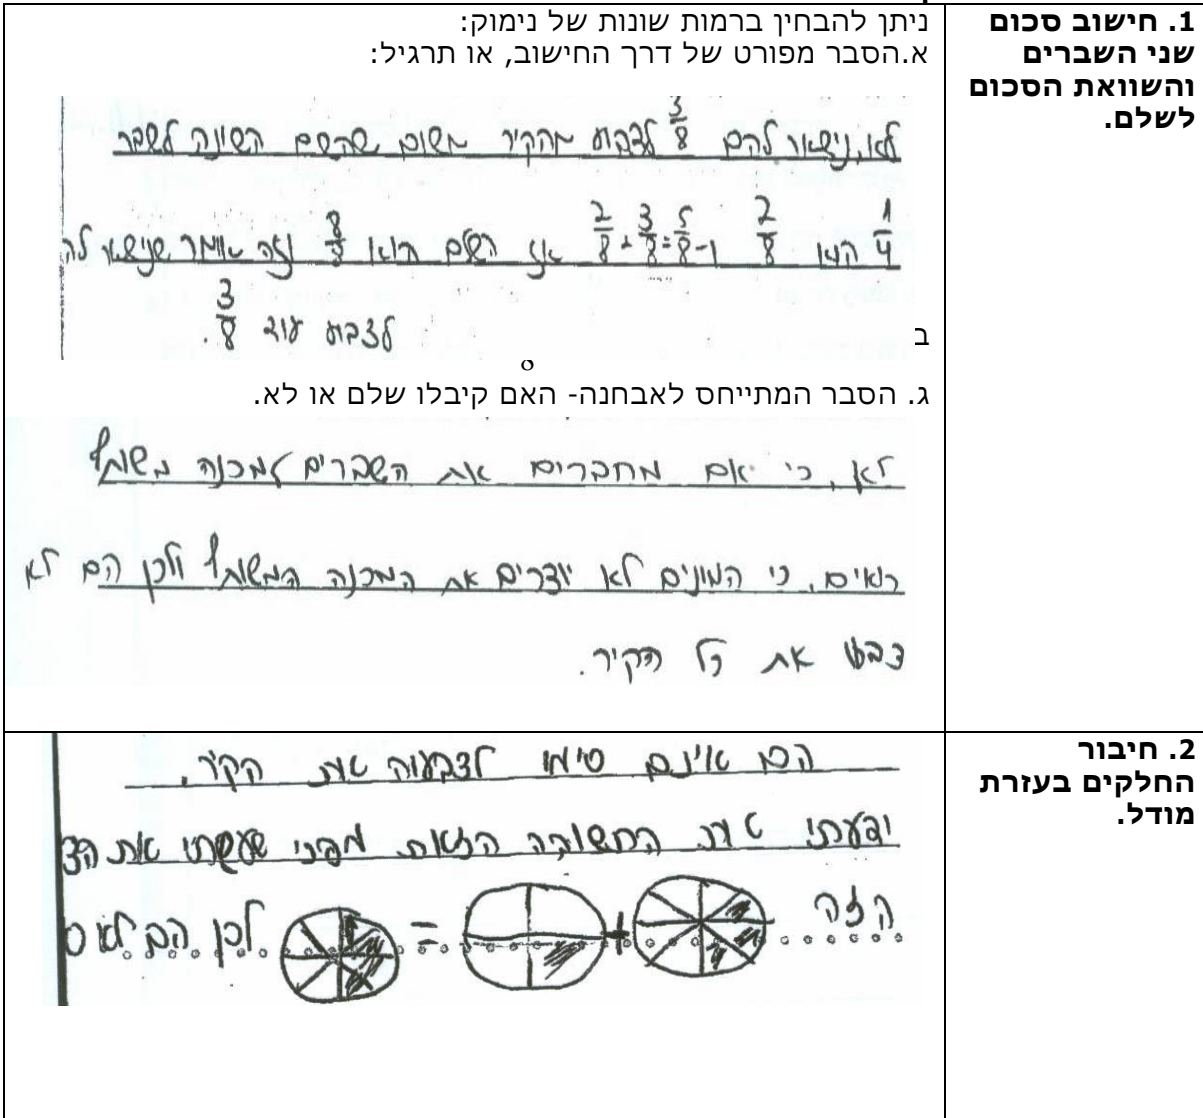 1. חישוב סכום
שני השברים
והשוואת הסכום
לשלם.
ניתן להבחין ברמות שונות של נימוק:
א.הסבר מפורט של דרך החישוב, או תרגיל:
לא, נישאר להם 3/8 לצבוע מהקיר משום שהשם השווה לשבר
1/4 הוא 2/8 ו- 5/8=3/8+2/8 אז השלם הוא 8/8 וזה אומר שנישאר לה
לצבוע עוד 3/8.
ב
ס
ג. הסבר המתייחס לאבחנה- האם קיבלו שלם או לא.
לא, כי אם מחברים את השברים למכנה משותף
רואים, כי המונים לא יוצרים את המכנה המשותף ולכן הם לא
צבעו את כל הקיר.
2. חיבור
החלקים בעזרת
מודל.
הם אינם סימו לצבוע את הקיר.
את התשובה הזאת מפני שעשיתי את הצ
הזה + = לכן הם לא ס